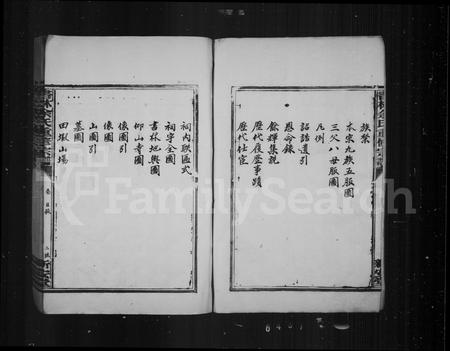 族禁
本宗九族五服圖
三父八母服圖
凡例
誥諭遺引
恩命錄
餘輝集說
歷代履歷事蹟
歷代仕宦
祠內聯匾式
祠宇全圖
仰山寺圖
書林地輿圖
像圖引
像圖
山圖引
墓圖
田塅山場
FamilySearch